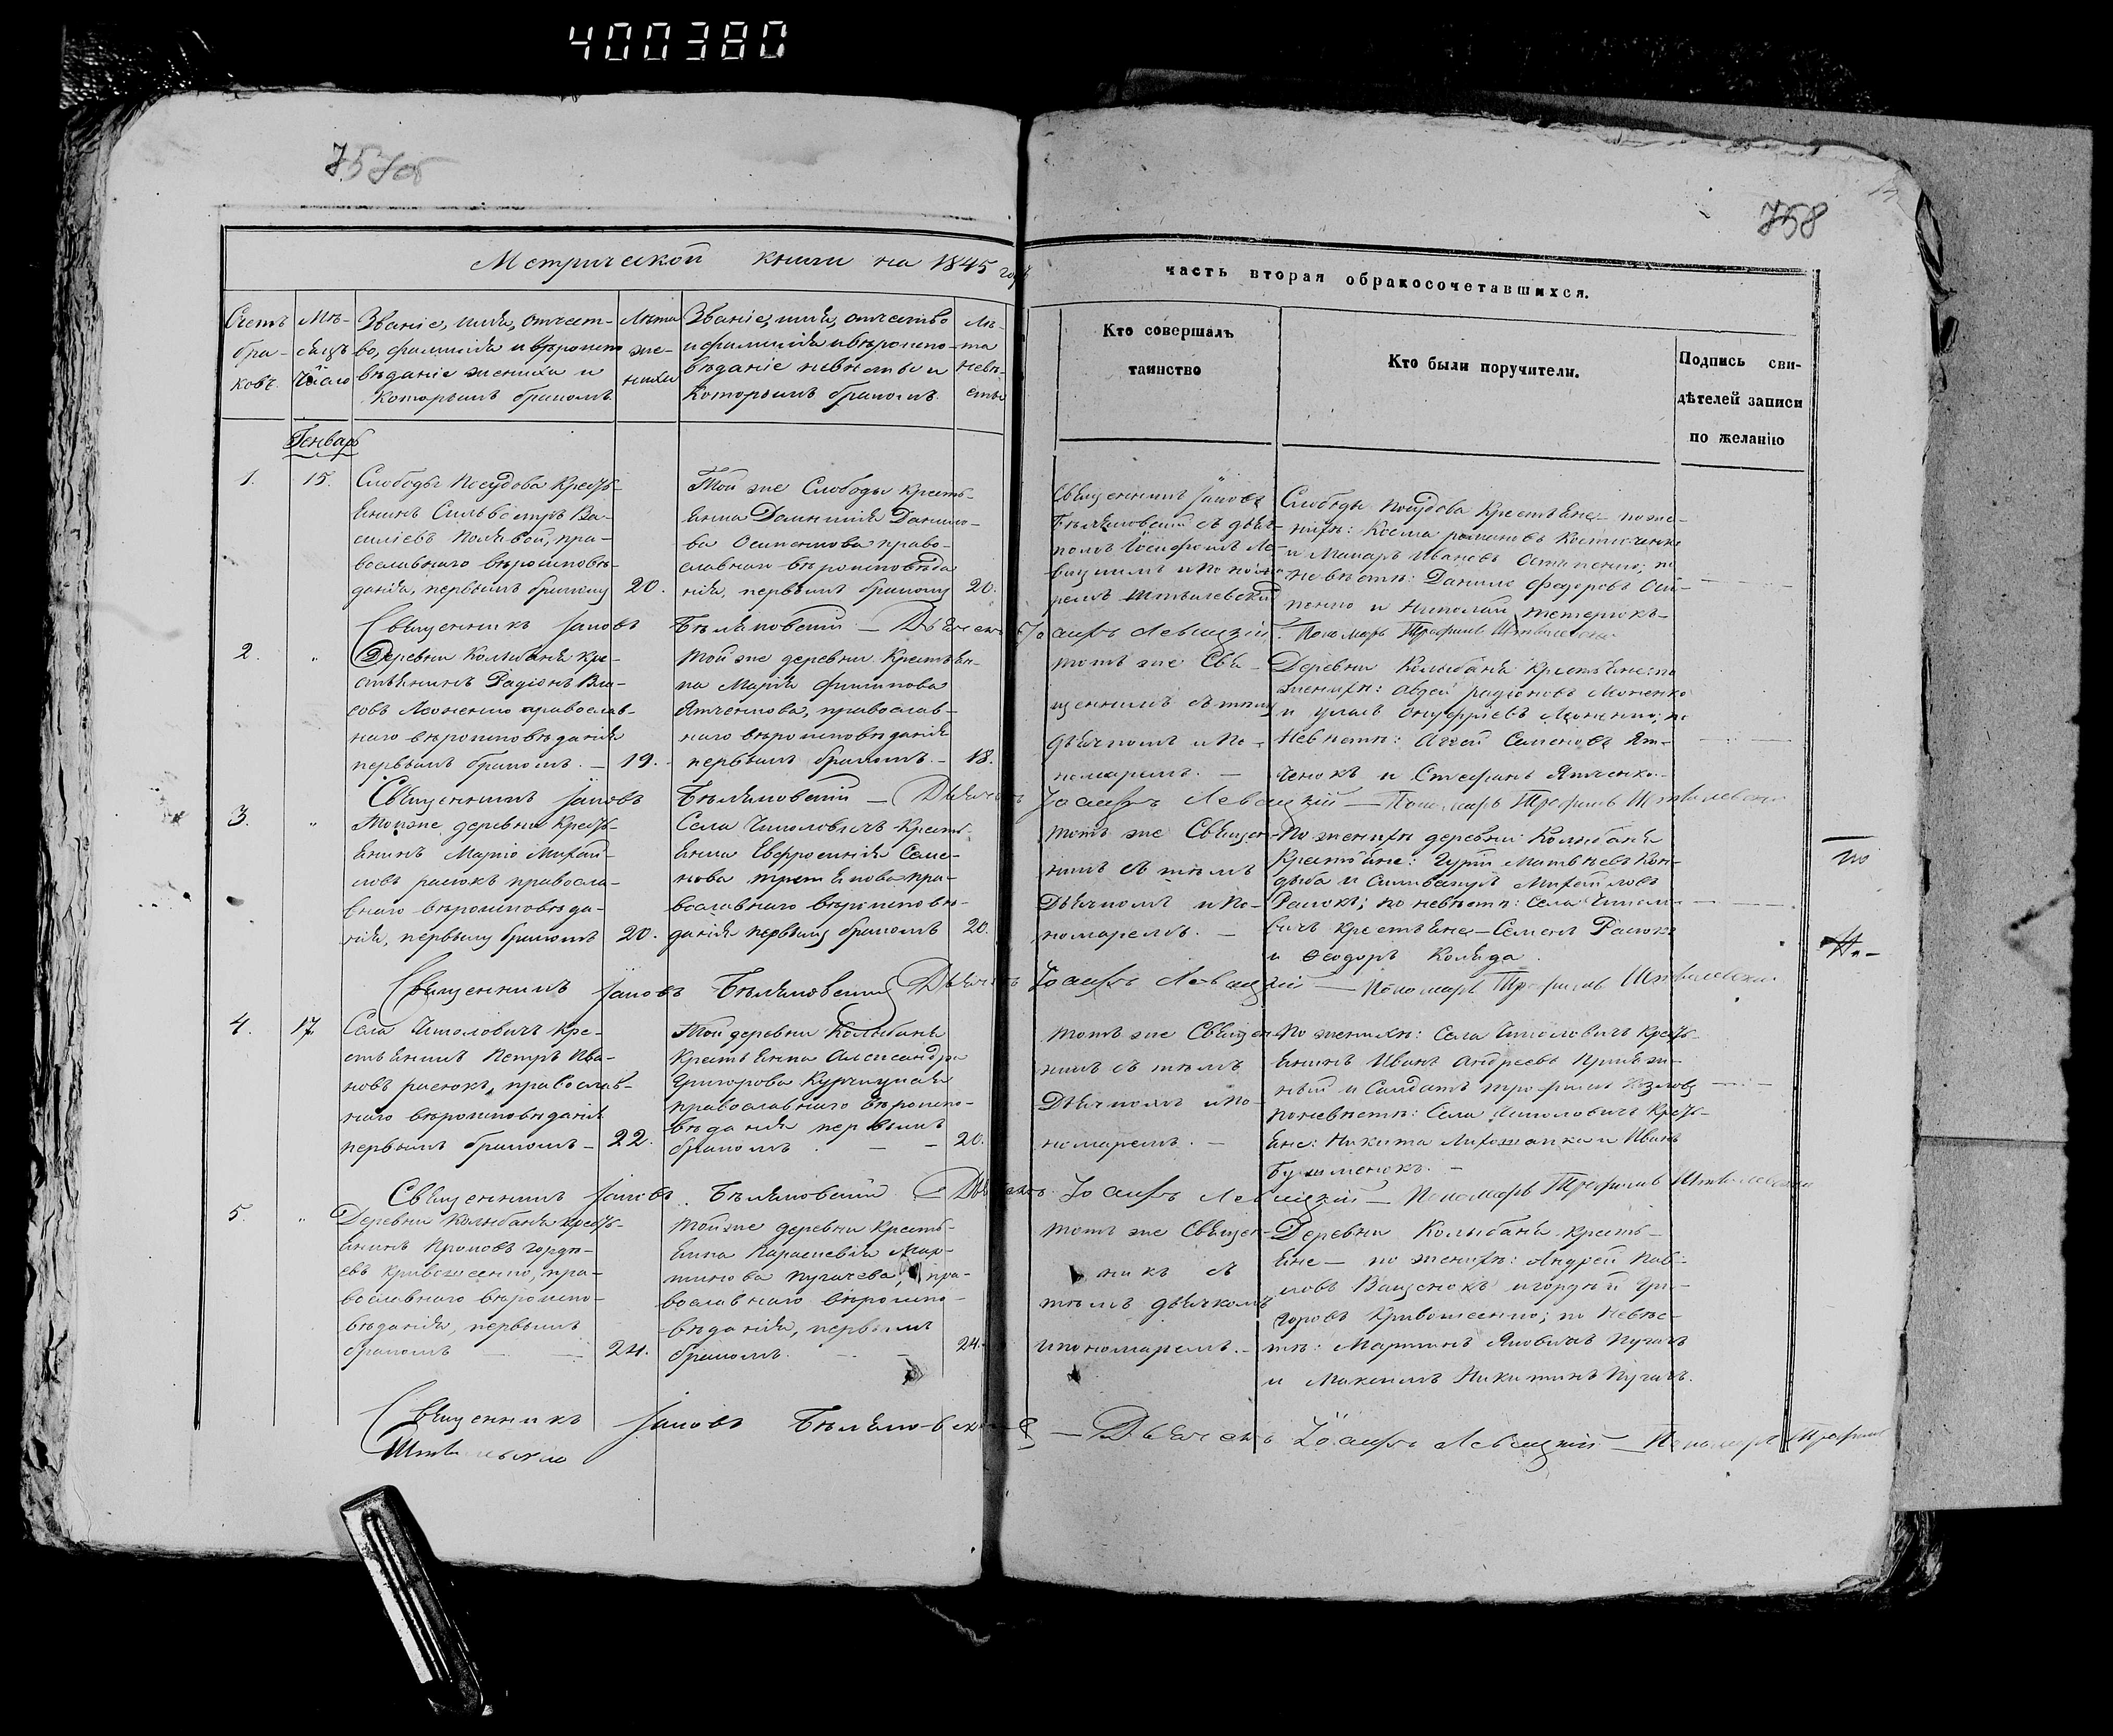 400380
757об
758
Метрической книги на 1845 годъ
часть вторая обракосочетавшихся.
Счетъ бра- ковъ.
Мѣ- сяцъ Число
Званіе, имя, отчест-
во, фамилія и вѣроиспо
вѣданіе жениха и
которымъ бракомъ.
Лѣта же- ниха
Званіе, имя, отчество
и фамилія и вѣроиспо-
вѣданіе невѣсты и
которымъ бракомъ.
Лѣ- та невѣ- сты
Кто совершалъ
таинство
Кто были поручители.
Подпись сви-
дѣтелей записи
по желанію
Генварь
1.
15.
Слободы Посудова Кресть-
янинъ Сильвестръ Ва-
силіевъ Полевой, пра-
вославнаго вѣроисповѣ-
данія, первымъ бракомъ
20.
Той же Слободы кресть-
янка Домникія Данило-
ва Осипенкова право-
славнаго вѣроисповѣда
нія, первымъ бракомъ
20.
Священникъ Іаковъ
Бѣляновскій съ дьяч-
комъ Іосифомъ Ле-
вицкимъ и поно-
ремъ
Слободы Посудова Крестьяне – по же-
нихѣ: Косма романовъ Костюченко
и Макаръ Ивановъ Остапенко; по
невѣстѣ: Данило федоровъ Оси-
пенко и Николай тетерюкъ –
Священникъ Іаковъ Бѣляновскій — Дьячекъ Іоаифъ Левицкій. Пономарь Трофимъ
2.
"
Деревни Колыбаня кре-
стьянинъ Радіонъ Вла-
совъ православ-
наго вѣроисповѣданія
первымъ бракомъ. –
19.
той же деревни Крестьян-
ка Марія филипова
Ятченкова, православ-
наго вѣроисповѣданія
первымъ бракомъ. –
18.
тотъ же Свя-
щенникъ съ тѣмъ
дьячкомъ и по-
номаремъ. –
Деревни Колыбаня крестьяне: по
женихѣ: Авдей радіоновъ
и онуфріевъ по
Невѣстѣ: Семеновъ Ят-
ченокъ и Стефанъ Ятченко.
Священникъ Іаковъ Бѣляновскій — Дьячекъ Іоаифъ Левицкій — Пономарь Трофимъ
3.
"
Той же деревни Кресть-
янинъ Марко Михай-
ловъ расюкъ правосла-
внаго вѣроисповѣда-
нія, первымъ бракомъ
20.
Села Чиколовичъ Кресть-
янка Евфросинія Семе-
нова пра-
вославнаго вѣроисповѣ-
данія первымъ бракомъ
20.
тотъ же Священ-
никъ съ тѣмъ
Дьячкомъ и по-
номаремъ. –
По женихѣ деревни Колыбаня
Крестьяне: Гурій Матвѣевъ Кон-
дыба и Михайловъ
Расюкъ; по невѣстѣ: Села Чиколо-
вичъ крестьяне – Семенъ Расюкъ
и Ѳеодоръ Коляда.
Священникъ Іаковъ Бѣляновскій Дьячекъ Іоаифъ Левицкій — Пономарь Трофимъ
4.
17
Села Чиколовичъ Кре-
стьянинъ Петръ Ива-
новъ расюкъ, православ-
наго вѣроисповѣданія
первымъ бракомъ –
22.
Той деревни Колыбань
Крестьянка Александра
Григорова
православнаго вѣроиспо-
вѣданія первымъ
бракомъ. – –
20.
тотъ же Священ-
никъ съ тѣмъ
Дьячкомъ и по-
номаремъ. –
По женихѣ: Села Чиколовичъ Кресть-
янинъ Иванъ Андреевъ
и Салдатъ трофимъ Козловъ
по невѣстѣ: Села Чиколовичъ Кресть-
яне: Никита и Иванъ
Священникъ Іаковъ Бѣляновскій — Дьячекъ Іоаифъ Левицкій — Пономарь Трофимъ
5.
"
Деревни Колыбаня Кресть-
янинъ Проковъ гордѣ-
евъ Кривошеенко, пра-
вославнаго вѣроиспо-
вѣданія, первымъ
бракомъ — —
24.
той же деревни кресть-
янка Параскевія Мар-
тинова пугачева, пра-
вославнаго вѣроиспо-
вѣданія, первымъ
бракомъ. – –
24.
тотъ же Священ-
никъ съ
тѣмъ дьячкомъ
и пономаремъ. –
Деревни Колыбаня кресть-
яне – по женихѣ: Андрей Пав-
ловъ Ващенокъ и гордѣй Гри-
горовъ Кривошеенко; по Невѣс-
тѣ: Мартинъ Пугачъ
и Максимъ Никитинъ Пугачъ.
Священникъ Іаковъ Бѣляновскій — Дьячекъ Іоаифъ Левицкій — Пономарь Трофимъ